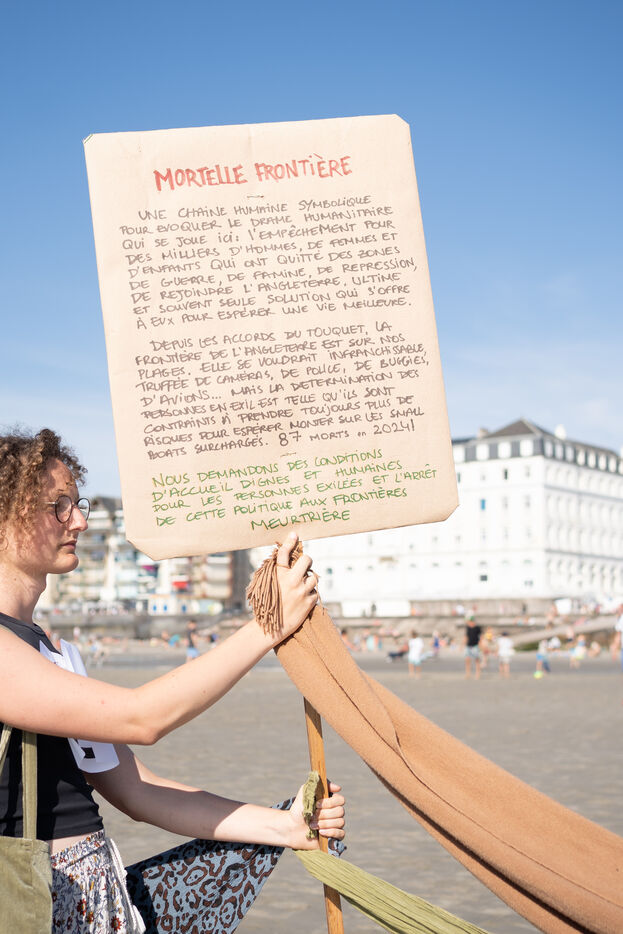 MORTELLE FRONTIÈRE
UNE CHAÎNE HUMAINE SYMBOLIQUE
POUR EVOQUER LE DRAME HUMANITAIRE
QUI SE JOUE ICI: L'EMPÊCHEMENT POUR
DES MILLIERS D'HOMMES, DE FEMMES ET
D'ENFANTS QUI ONT QUITTÉ DES ZONES
DE GUERRE, DE FAMINE, DE REPRESSION,
DE REJOINDRE L'ANGLETERRE, ULTIME
ET SOUVENT SEULE SOLUTION QUI S'OFFRE
À EUX POUR ESPÉRER UNE VIE MEILLEURE.
DEPUIS LES ACCORDS DU TOUQUET, LA
FRONTIÈRE DE L'ANGLETERRE EST SUR NOS
PLAGES. ELLE SE VOUDRAIT INFRANCHISSABLE,
TRUFFÉE DE CAMÉRAS, DE POLICE, DE BUGGIES,
D'AVIONS... MAIS LA DETERMINATION DES
PERSONNES EN EXIL EST TELLE QU'ILS SONT
CONTRAINTS À PRENDRE TOUJOURS PLUS DE
RISQUES POUR ESPÉRER MONTER SUR LES SMALL
BOATS SURCHARGÉS. 87 MORTS en 2024!
NOUS DEMANDONS DES CONDITIONS
D'ACCUEIL DIGNES ET HUMAINES
POUR LES PERSONNES EXILÉES ET L'ARRÊT
DE CETTE POLITIQUE AUX FRONTIÈRES
MEURTRIÈRE